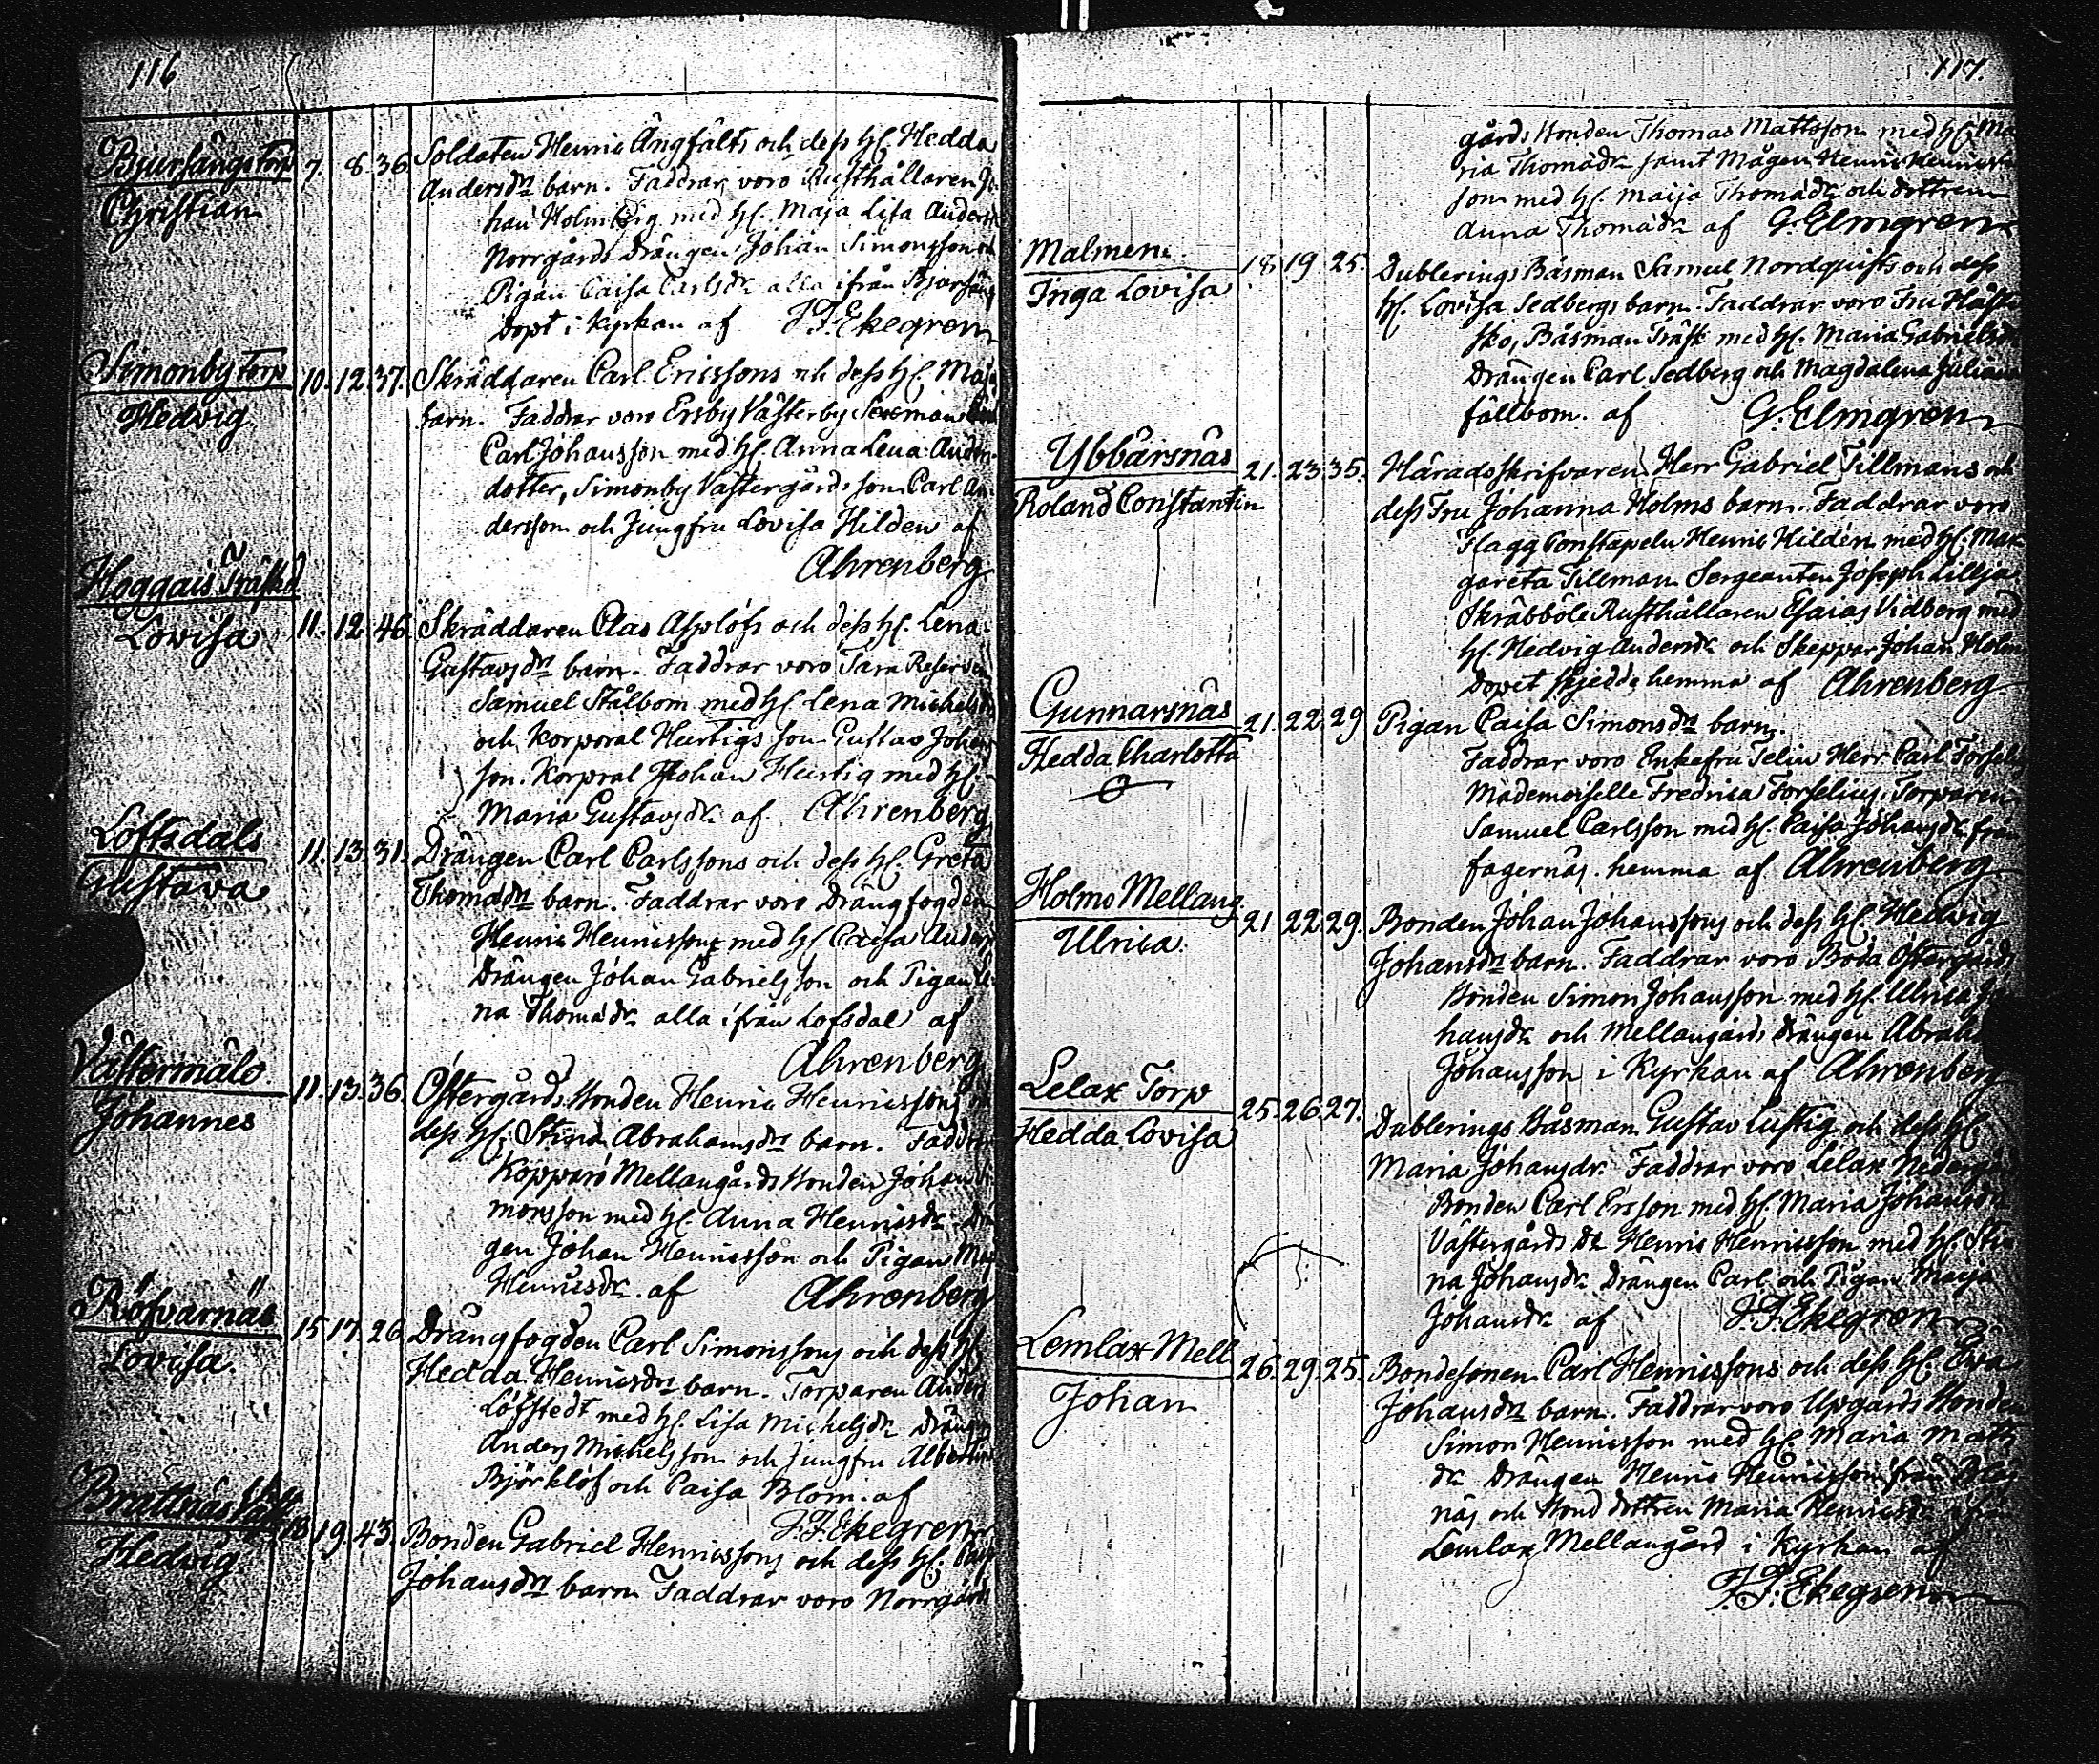 116
Bjursängs Torp 7. 8. 36. Soldaten Henric Ängfälts och dess H. Hedda
Christian Andersdr barn. Faddrar voro Rusthållaren Jo-
han Holmberg med H. Maja Lisa Andersdr
Norrgårds Drängen Johan Simonsson och
Pigan Caisa Carlsdr alla ifrån Bjursäng
Döpt i Kyrkan af J.F. Ekegren
Simonby Torp 10. 12. 37. Skräddaren Carl Ericssons och dess H. Maja
Hedvig barn. Faddrar voro Ersby Västerby Sexman
Carl Johansson med H. Anna Lena Anders-
dotter, Simonby Västergårds son Carl An-
dersson och Jungfru Lovisa Hilden af
Ahrenberg
Heggais Träsk
Lovisa 11. 12. 46. Skräddaren Clas Asplöfs och dess H. Lena
Gustavsdr barn. Faddrar voro
Samuel Stålbom med H. Lena Michelsdr
och Korporal Hurtigs son Gustav Johans
son. Korpral Johan Hurtig med H.
Maria Gustavsdr af Ahrenberg
Loftsdals 11. 13. 31. Drängen Carl Carlssons och dess H. Greta
Gustava Thomasdr barn. Faddrar voro Drängfogden
Henric Henricsson med H. Caisa Anders
Drängen Johan Gabrielsson och Pigan Le-
na Thomadr alla ifrån Lofsdal af
Ahrenberg
Västermälo 11. 13. 36. Östergårds Bonden Henric Henricssons
Johannes dess H. Stina Abrahamsdr barn. Faddrar
Kopparö Mellangårds Bonden Johan Si-
monsson med H. Anna Henricsdr Drän
gen Johan Henricsson och Pigan Maj
Henricsdr. af Ahrenberg
Röfvarnäs 15. 17. 26. Drängfogden Carl Simonssons och dess H.
Lovisa Hedda Henricsdr barn. Torparen Anders
Löfstedt med H. Lisa Michelsdr Dräng
Anders Michelsson och Jungfru Albertina
Björklöf och Caisa Blom. af
J.F. Ekegren
Brattnäs Väst 18. 19. 43. Bonden Gabriel Henricssons och dess H. Caisa
Hedvig Johansdr barn Faddrar voro Norrgårds
117.
gårds Bonden Thomas Mattsson med H. Ma
ria Thomädr samt Mågen Henric Henrics
son med H. Maija Thomädr och dottren
Anna Thomädr af G. Elmgren
Malmen 18. 19. 25. Dublerings Båsman Samuel Nordquists och dess
Inga Lovisa H. Lovisa Sedbergs barn. Faddrar voro Fru Häste
sko, Båsman Träsk med H. Maria Gabrielsdr
Drängen Carl Sedberg och Magdalina Juliana
fällbom. af G. Elmgren
Ybbärsnäs 21. 23. 35. Häradsskrifvaren Herr Gabriel Tillmans och
Roland Constantin dess Fru Johanna Holms barn. Faddrar voro
Flagg Constapeln Henric Hildén med H. Mar
gareta Tillman Sergeanten Joseph Lillja
Skräbböle Rusthållaren Esaias Vidberg med
H. Hedvig Andersdr och Skeppar Johan Holm
Dopet skjedde hemma af Ahrenberg
Gunnarsnäs 21. 22. 29 Pigan Caisa Simonsdr barn.
Hedda Charlotta Faddrar voro Enkefru Telin Herr Carl Forselius
Mademoiselle Fredrica Forselius, Torparen
Samuel Carlsson med H. Caisa Johansdr från
fagernäs. hemma af Ahrenberg
Holmo Mellang. 21. 22. 29. Bonden Johan Johanssons och dess H. Hedvig
Ulrica Johansdr barn. Faddrar voro Boda Östergårds
Bonden Simon Johansson med H. Ulrica Jo
hansdr och Mellangårds Drängen Abraha
Johansson i Kyrkan af Ahrenberg
Lelax Torp 25. 26. 27. Dublerings Båsman Gustav Lustig och dess H.
Hedda Lovisa Maria Johansdr. Faddrar voro Lelax Nedergå
Bonden Carl Ersson med H. Maria Johansdr
Västergårds Dr Henric Henricsson med H. Sti
na Johansdr Drängen Carl och Pigan Maija
Johansdr af J.F. Ekegren
Lemlax Mell 26. 29. 25. Bondesonen Carl Henricssons och dess H. Ewa
Johan Johansdr barn. Faddrar voro Upgårds Bonden
Simon Henricsson med H. Maria Matts
dr Drängen Henric Henricsson från
näs och Bond dottren Maria Henricsdr ifrån
Lemlax Mellangård i Kyrkan af
J.F. Ekegren